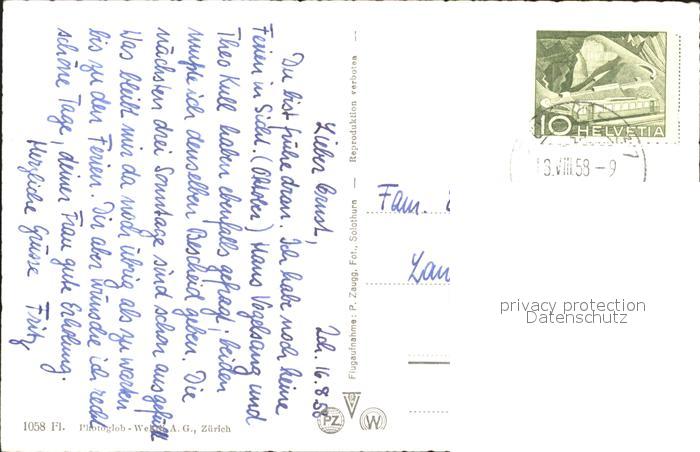 Zch. 16.8.58
Lieber Ernst,
Du bist frühe dran. Ich habe noch keine
Ferien in Sicht. (Oktober) Hans Vogelsang und
Theo Kull haben ebenfalls gefragt; beiden
musste ich denselben Bescheid geben. Die
nächsten drei Sonntage sind schon ausgefüllt
Was bleibt mir da noch übrig als zu warten
bis zu den Ferien. Dir aber wünsche ich recht
schöne Tage, deiner Frau gute Erholung.
Herzliche Grüsse Fritz
1058 Fl. Photoglob-Wehrli A. G., Zürich
Flugaufnahme: P. Zaugg, Fot., Solothurn — Reproduktion verboten —
PZ V W
10 HELVETIA
18.VIII.58-9
Fam.
privacy protection
Datenschutz